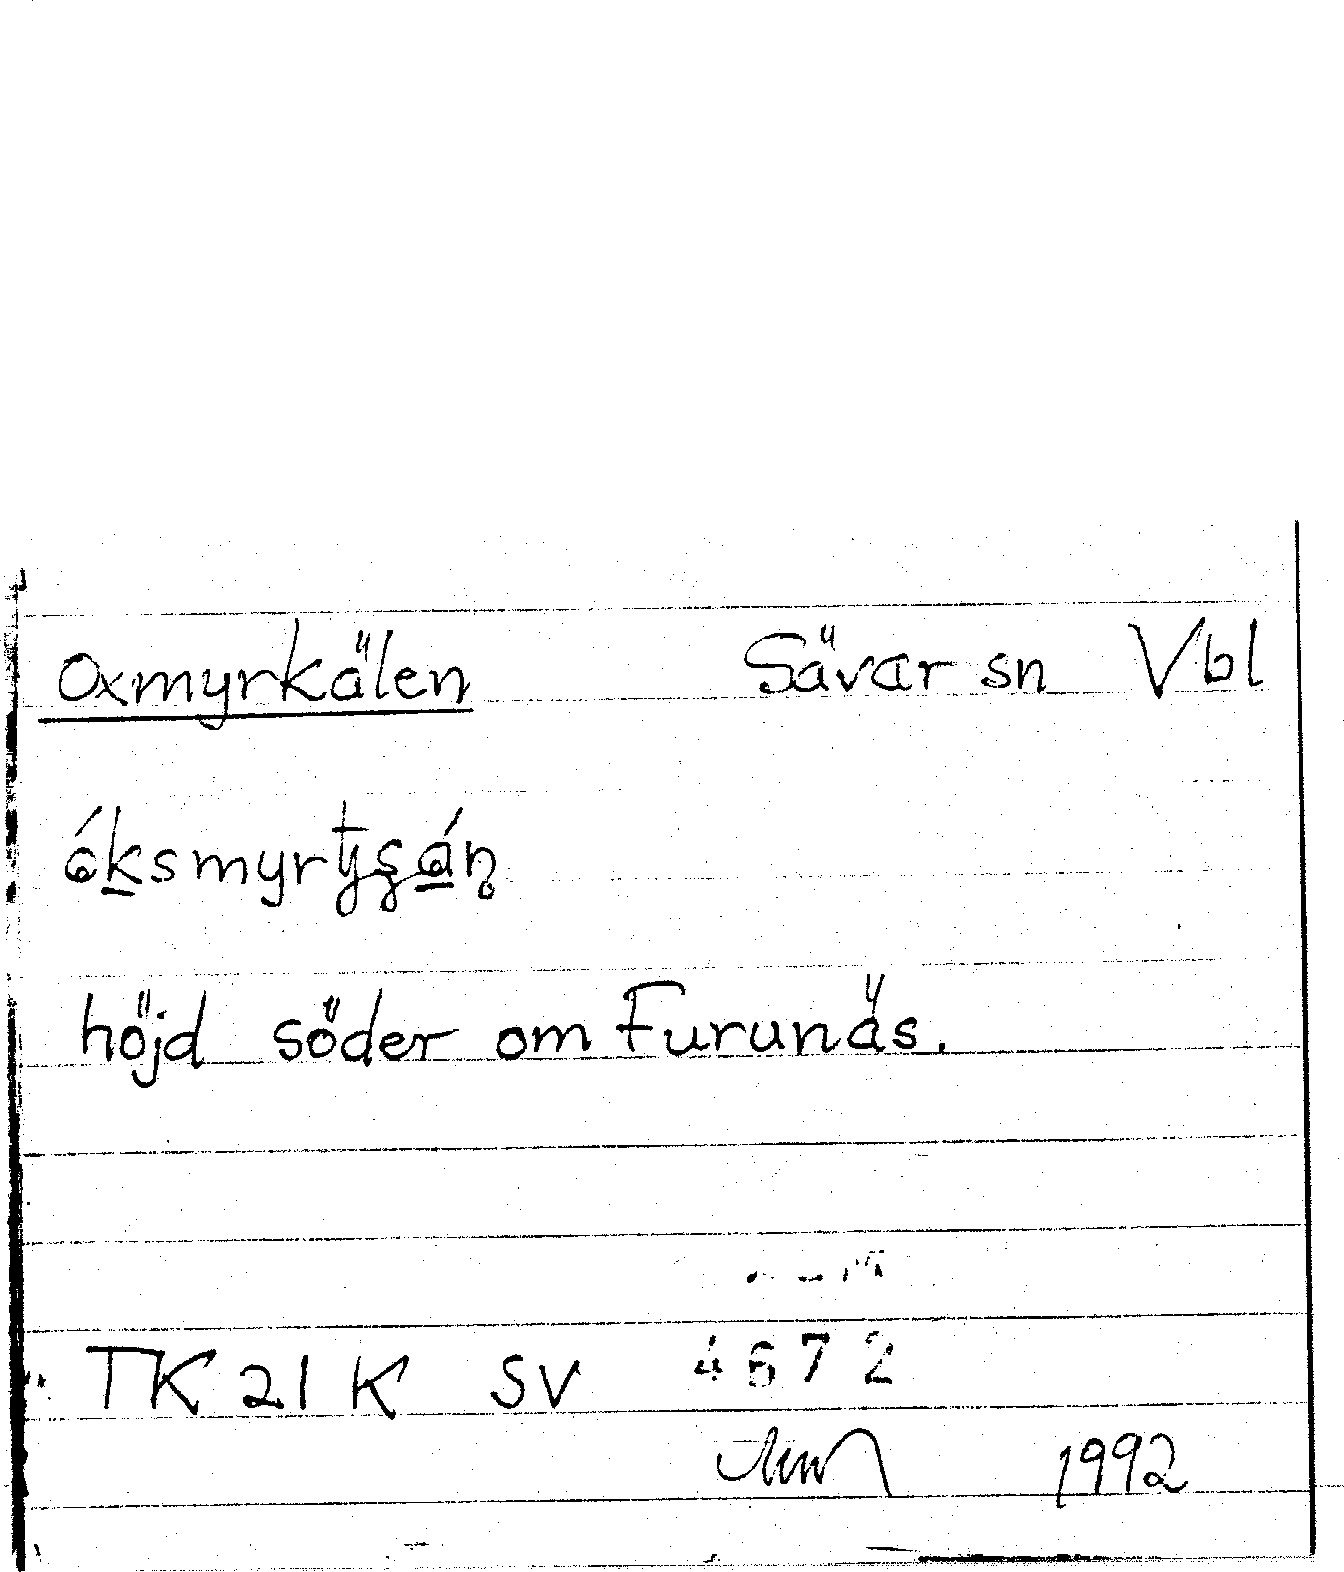 Oxmyrkälen Sävar sn Vbl
höjd söder om Furunäs.
TK 21 K SV 4672
1992